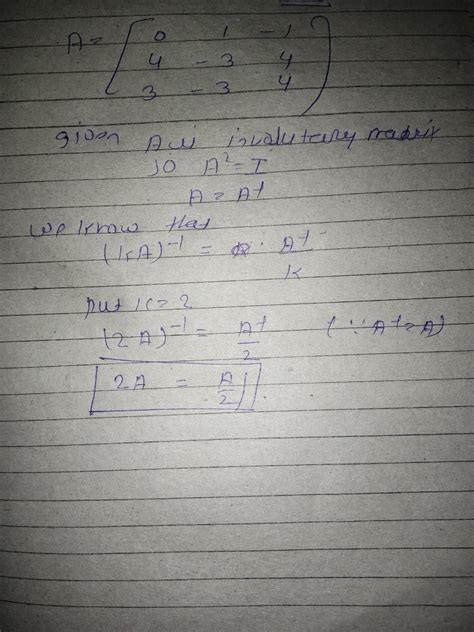 A = ( 0 1 -1
4 -3 4
3 -3 4 )
given A is involutary matrix
so A² = I
A = A⁻¹
we know that
(kA)⁻¹ = A⁻¹/k
put k = 2
(2A)⁻¹ = A⁻¹/2 (∵ A⁻¹ = A)
2A = A/2